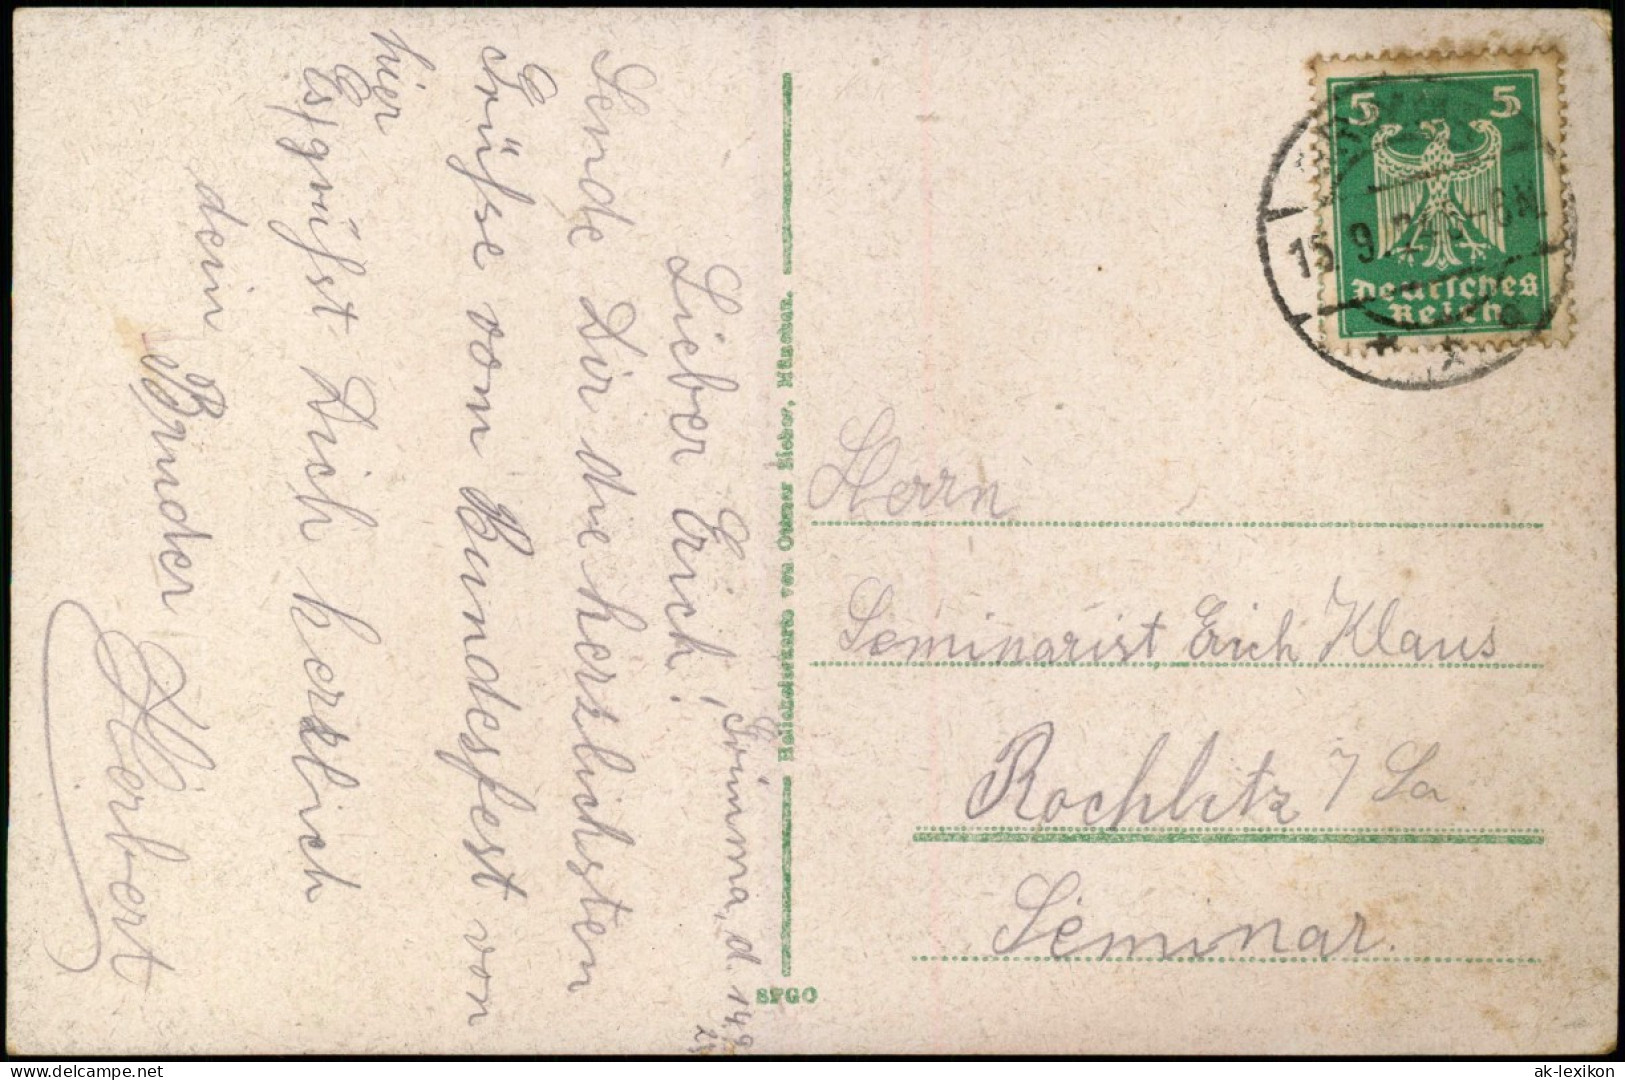 Grimma, d. 14.9.
Lieber Erich!
Sende Dir die herzlichsten
Grüße vom Bundesfest von
hier
Es grüßst Dich herzlich
dein Bruder
Herbert
Heliokolorkarte von Ottmar Zieher, München.
SPGO
5 5
Deutsches
Reich
15.9. 5-6N
Herrn
Seminarist Erich Klaus
Rochlitz i/Sa
Seminar.
ak-lexikon
© delcampe.net